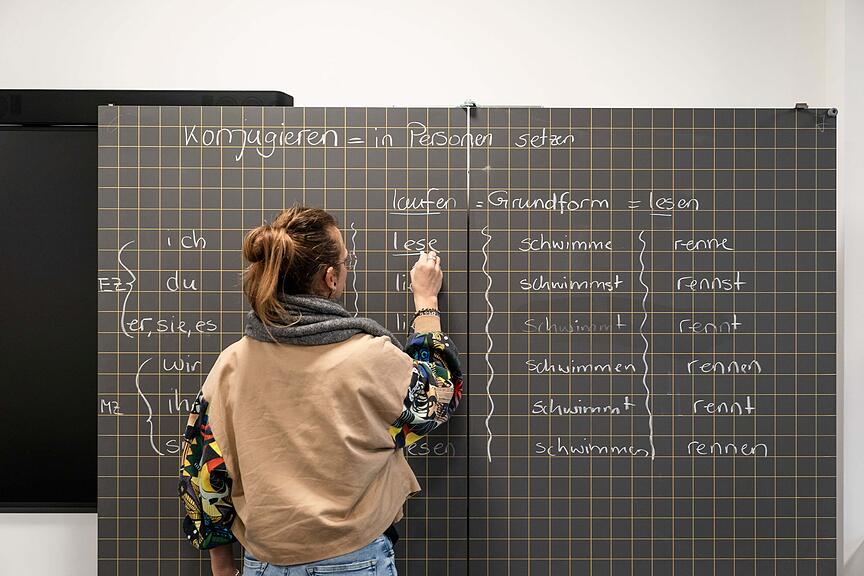 Konjugieren = in Personen setzen
laufen = Grundform = lesen
ich lese schwimme renne
EZ du li schwimmst rennst
er, sie, es li schwimmt rennt
wir schwimmen rennen
MZ ih schwimmt rennt
s esen schwimmen rennen